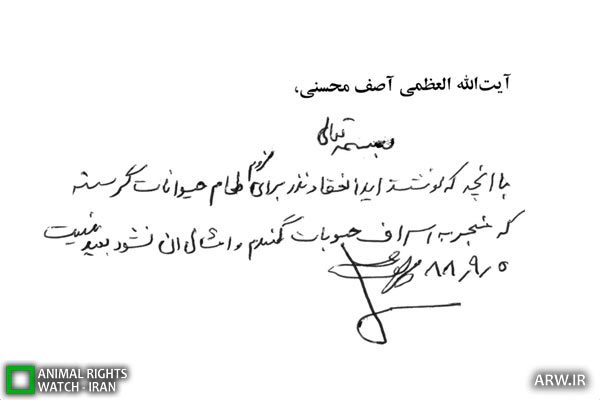 آیت‌الله العظمی آصف محسنی،
بسمه تعالی
با آنچه که نوشته اید انعقاد نذر برای لزوم طعام حیوانات گرسنه
که منجر به اسراف حبوبات گندم و امثال ان نشود بعید نیست
۸۸٫۹٫۵
ANIMAL RIGHTS
WATCH - IRAN
ARW.IR